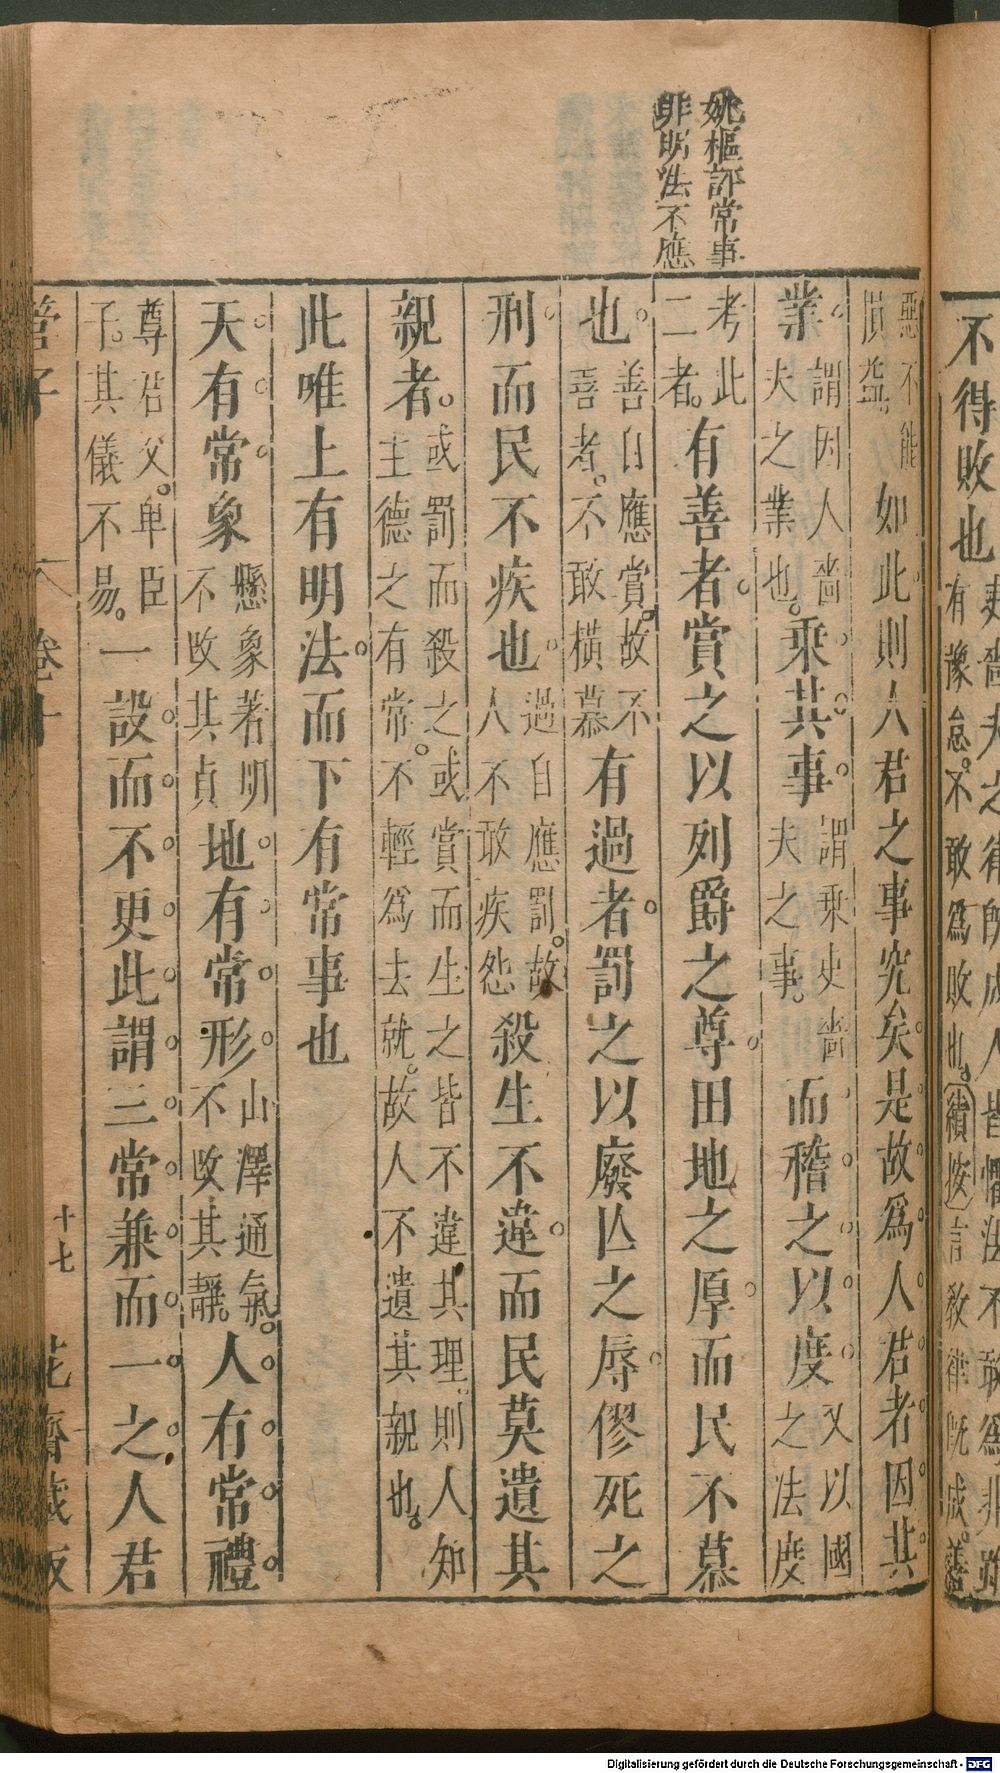 不得敗也
有豫怠不敢爲敗也。續按言教律既成。善
姚樞評常事
非明法不應
惡不能
損益。
如此則人君之事究矣是故爲人君者因其
業
謂因人嗇
夫之業也。
乘其事
謂乘吏嗇
夫之事。
而稽之以度
又以國
之法度
考此
二者。
有善者賞之以列爵之尊田地之厚而民不慕
也
善自應賞。故不
喜者。不敢橫慕
有過者罰之以廢亾之辱僇死之
刑而民不疾也
過自應罰。故
人不敢疾怨
殺生不違而民莫遺其
親者。
或罰而殺之或賞而生之皆不違其理。則人知
主德之有常。不輕爲去就。故人不遺其親也。
此唯上有明法而下有常事也
天有常象
懸象著明
不改其貞
地有常形
山澤通氣。
不改其靜。
人有常禮
尊君父。卑臣
子。其儀不易。
一設而不更此謂三常兼而一之人君
管子
卷十
十七
花齋藏板
Digitalisierung gefördert durch die Deutsche Forschungsgemeinschaft - DFG